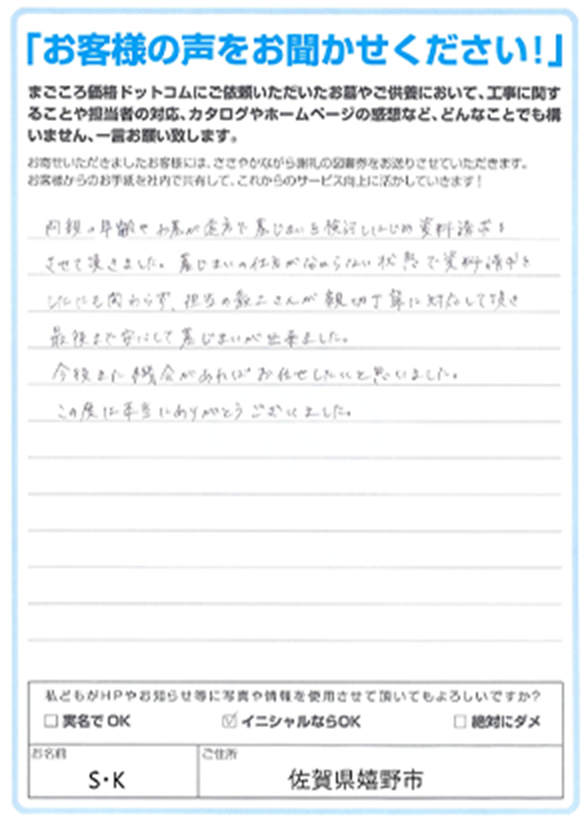 「お客様の声をお聞かせください!」
まごころ価格ドットコムにご依頼いただいたお墓やご供養において、工事に関す
ることや担当者の対応、カタログやホームページの感想など、どんなことでも構
いません、一言お願い致します。
お寄せいただきましたお客様には、ささやかながら謝礼の図書券をお送りさせていただきます。
お客様からのお手紙を社内で共有して、これからのサービス向上に活かしていきます!
両親の年齢やお墓が遠方で墓じまいを検討しはじめ資料請求を
させて頂きました。墓じまいの仕方が分からない状態で資料請求を
したにも関わらず、担当の数上さんが親切丁寧に対応して頂き
最後まで安心して墓じまいが出来ました。
今後また機会があればお任せしたいと思いました。
この度は本当にありがとうございました。
私どもがHPやお知らせ等に写真や情報を使用させて頂いてもよろしいですか?
実名でOK
イニシャルならOK
絶対にダメ
お名前
ご住所
S・K
佐賀県嬉野市